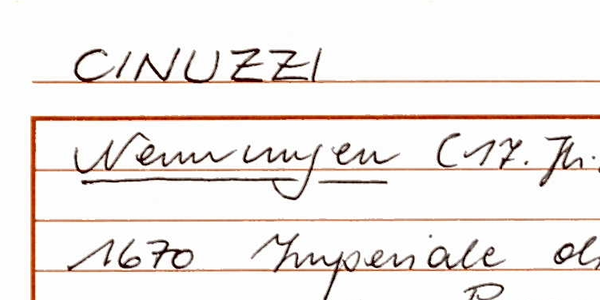 CINUZZI
Nennungen (17. Jh.
1670 Imperiale